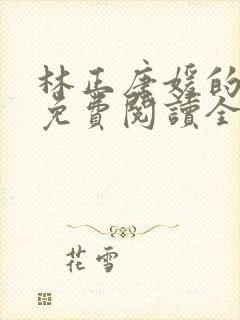 林正唐媛的
免費閱讀全
花雪